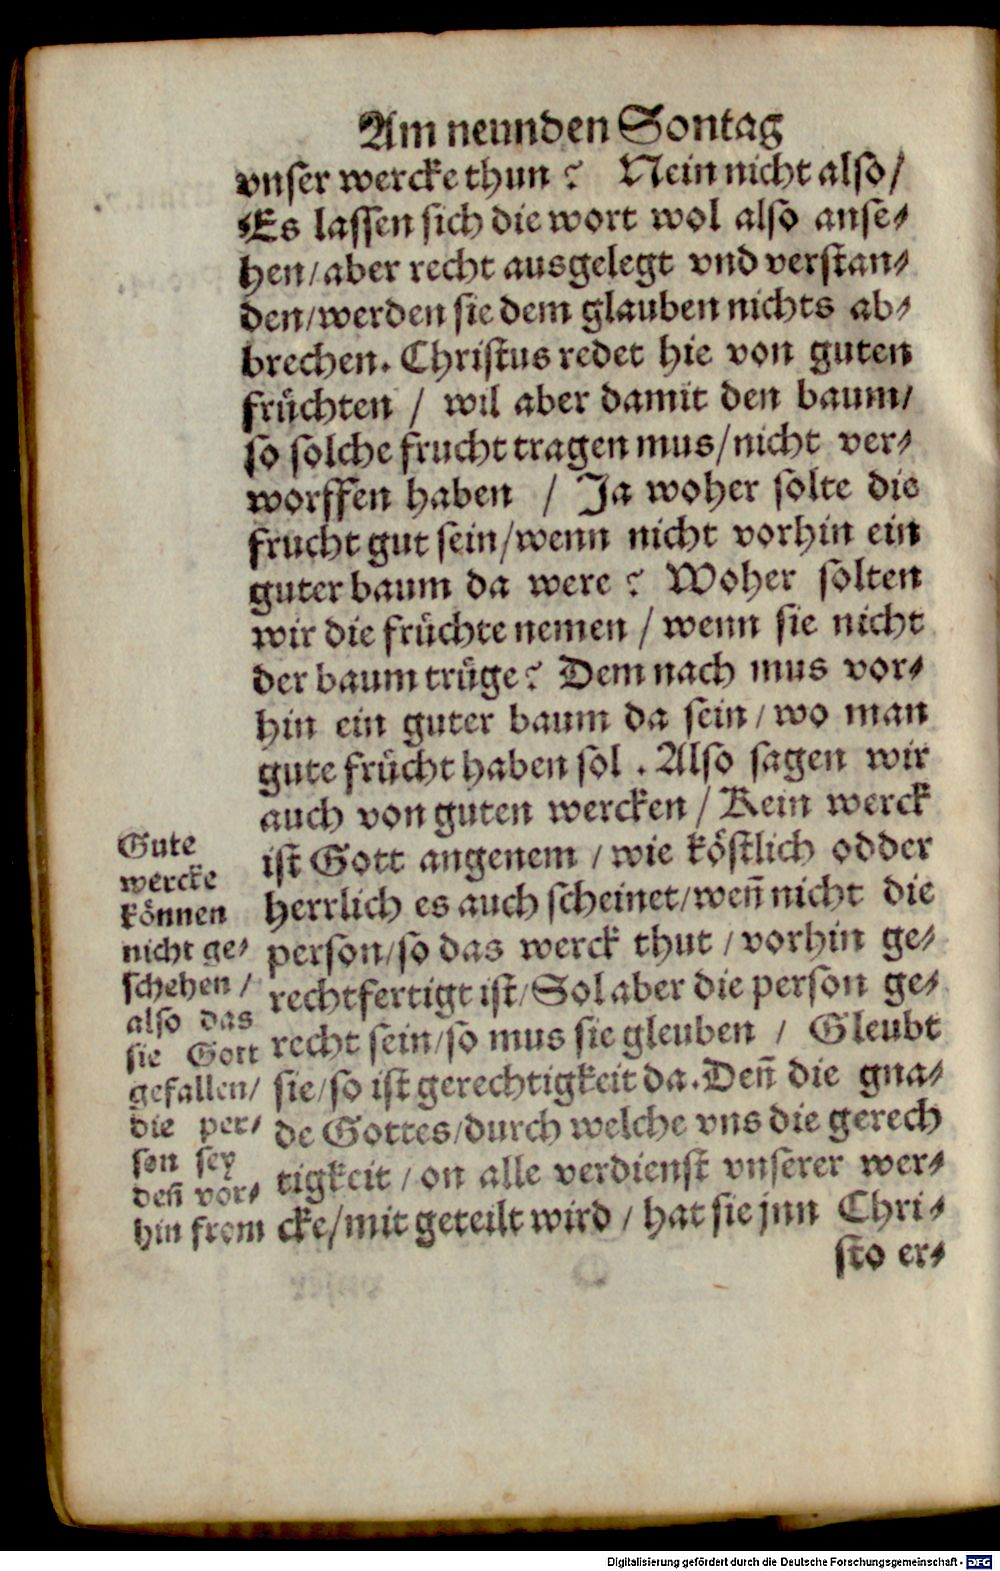 Am neunden Sontag
vnser wercke thun? Nein nicht also/
Es lassen sich die wort wol also anse-
hen/aber recht ausgelegt vnd verstan-
den/werden sie dem glauben nichts ab-
brechen. Christus redet hie von guten
früchten / wil aber damit den baum/
so solche frucht tragen mus/nicht ver-
worffen haben / Ja woher solte die
frucht gut sein/wenn nicht vorhin ein
guter baum da were? Woher solten
wir die früchte nemen / wenn sie nicht
der baum trüge? Dem nach mus vor-
hin ein guter baum da sein/wo man
gute frücht haben sol. Also sagen wir
auch von guten wercken / Kein werck
ist Gott angenem / wie köstlich odder
herrlich es auch scheinet/weñ nicht die
person/so das werck thut / vorhin ge-
rechtfertigt ist/Sol aber die person ge-
recht sein/so mus sie gleuben / Gleubt
sie/so ist gerechtigkeit da. Deñ die gna-
de Gottes/durch welche vns die gerech
tigkeit / on alle verdienst vnserer wer-
cke/mit geteilt wird / hat sie jnn Chri-
sto er-
Gute
wercke
können
nicht ge-
schehen /
also das
sie Gott
gefallen/
die per-
son sey
deñ vor-
hin from
Digitalisierung gefördert durch die Deutsche Forschungsgemeinschaft - DFG